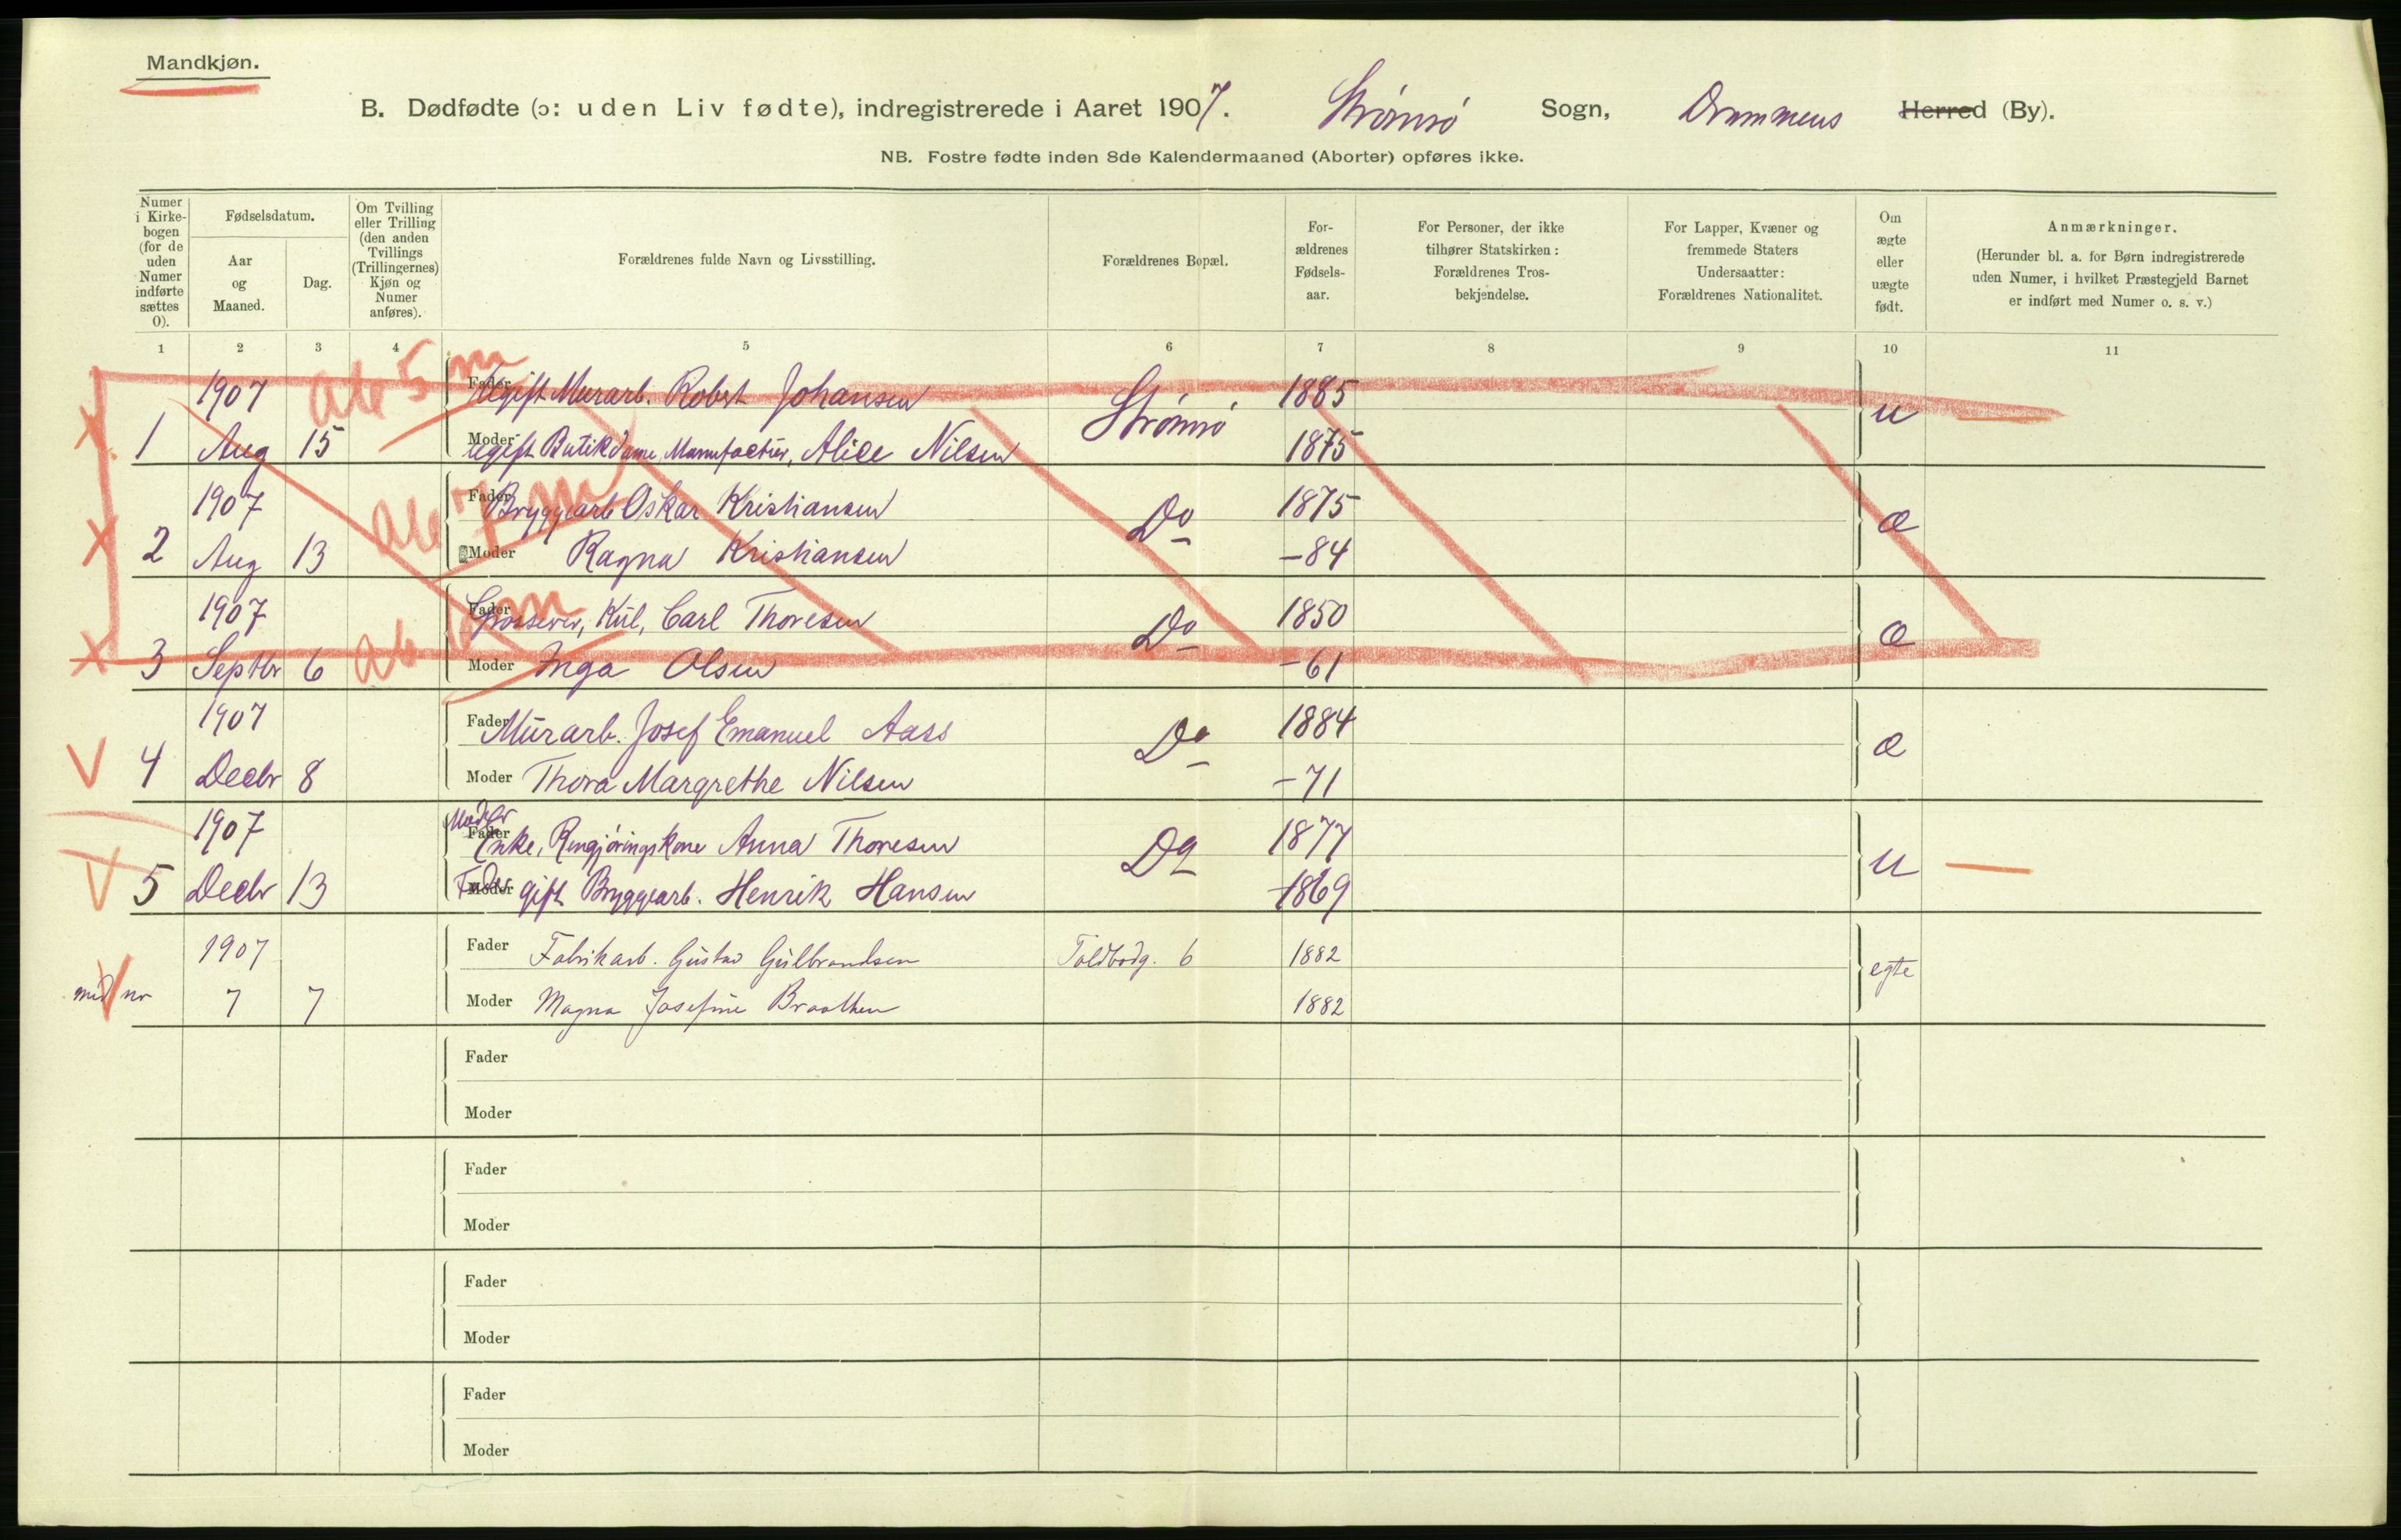 Mandkjøn.
B. Dødfødte (ɔ: uden Liv fødte), indregistrerede i Aaret 1907. Strømsø Sogn, Drammens Herred (By).
NB. Fostre fødte inden 8de Kalendermaaned (Aborter) opføres ikke.
Numer i Kirkebogen (for de uden Numer indførte sættes 0).
Fødselsdatum.
Aar og Maaned.
Dag.
Om Tvilling eller Trilling (den anden Tvillings (Trillingernes) Kjøn og Numer anføres).
Forældrenes fulde Navn og Livsstilling.
Forældrenes Bopæl.
For-
ældrenes
Fødsels-
aar.
For Personer, der ikke
tilhører Statskirken:
Forældrenes Tros-
bekjendelse.
For Lapper, Kvæner og
fremmede Staters
Undersaatter:
Forældrenes Nationalitet.
Om
ægte
eller
uægte
født.
Anmærkninger.
(Herunder bl. a. for Børn indregistrerede
uden Numer, i hvilket Præstegjeld Barnet
er indført med Numer o. s. v.)
1 2 3 4 5 6 7 8 9 10 11
1907 ab 5 m Fader Ugift Murarb. Robert Johansen Strømsø 1885 u
1 Aug 15 Moder Ugift Butikdame, Manufactur, Alice Nilsen 1875
1907 ab 7 m Fader Bryggearb Oskar Kristiansen Do 1875 æ
2 Aug 13 Moder Ragna Kristiansen -84
1907 ab m Fader Grosserer, Kul, Carl Thoresen Do 1850 æ
3 Septbr 6 Moder Inga Olsen -61
1907 Fader Murarb. Josef Emanuel Aass Do 1884 æ
4 Decbr 8 Moder Thora Margrethe Nilsen -71
1907 Moder Fader Enke, Rengjøringskone Anna Thoresen Do 1877 u
5 Decbr 13 Fader Moder gift Bryggearb. Henrik Hansen 1869
1907 Fader Fabrikarb. Gustav Gulbrandsen Toldbodg. 6 1882 egte
nr 7 7 Moder Magna Josefine Braathen 1882
Fader
Moder
Fader
Moder
Fader
Moder
Fader
Moder